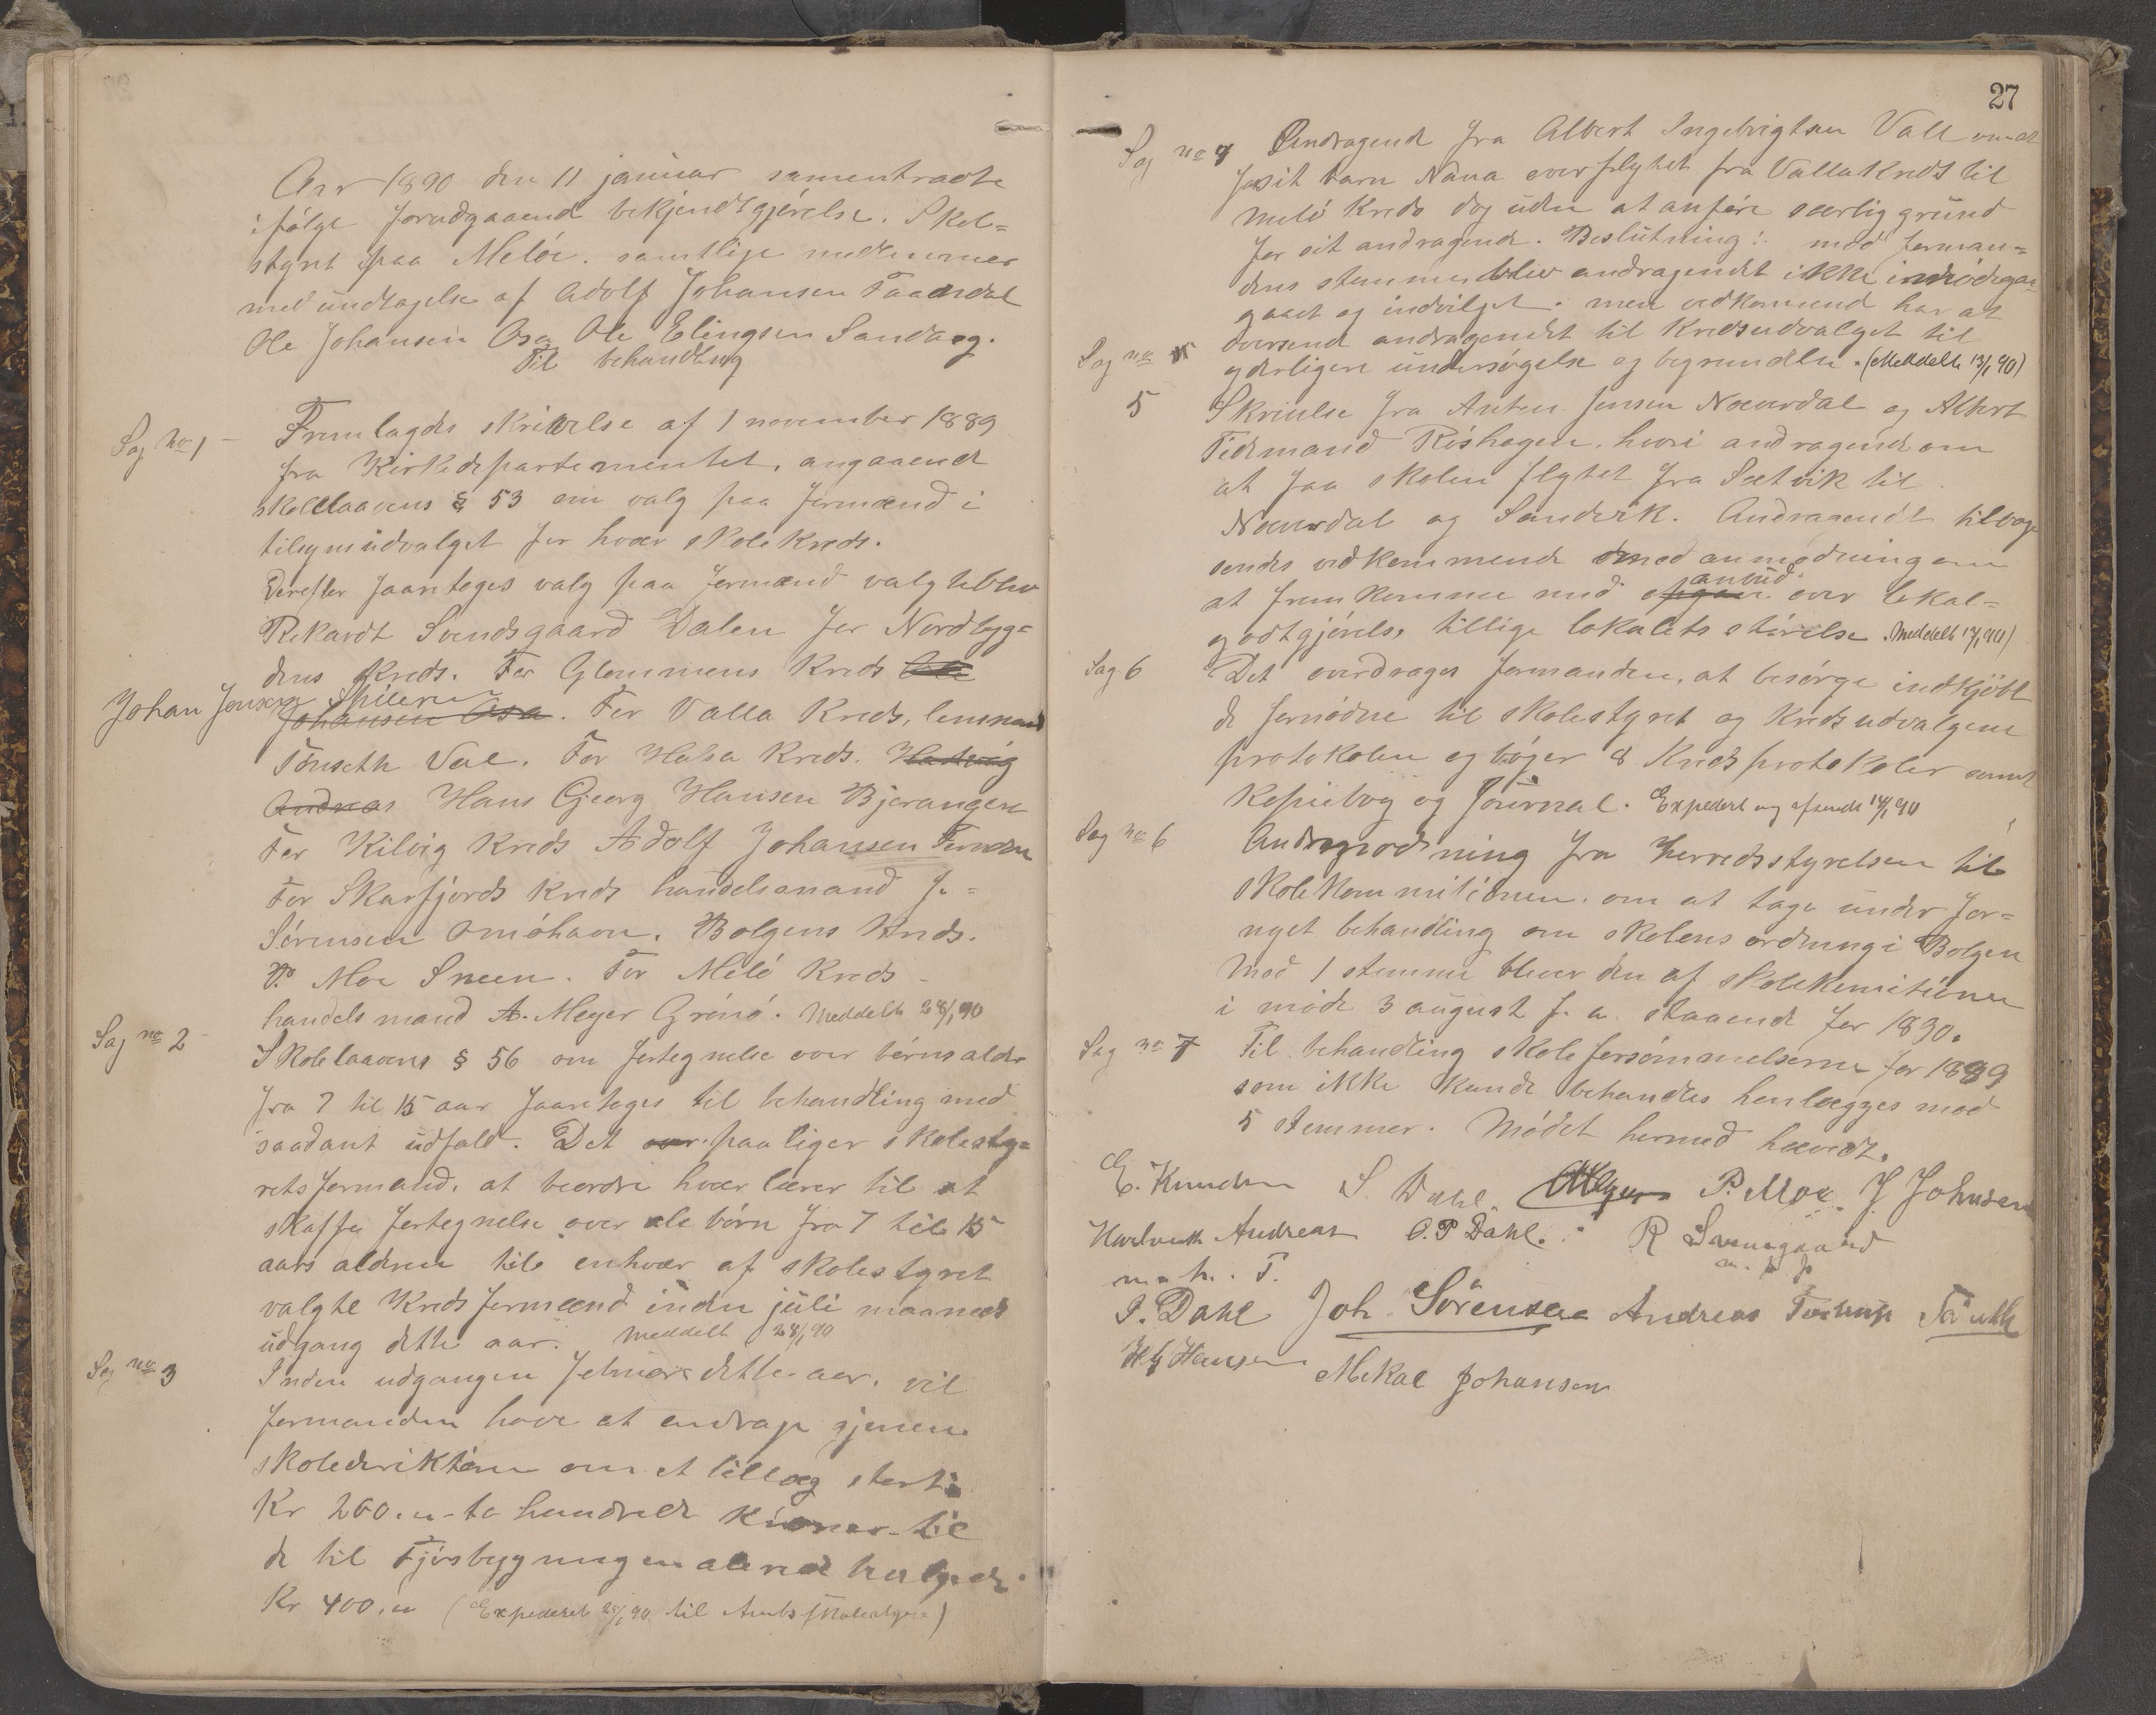 Aar 1890 den 11 januar samentraadte
ifølge forudgaaend bekjendtgjørelse. Skol=
styret paa Meløe. samtlige medlemmer
med undtagelse af Adolf Johansen
Ole Johansen Osa Ole Elingsen Sandaag.
Til behandling
Sag no 1 Fremlagdes skrivelse af 1 november 1889
fra Kirkedepartementet, angaaend
skolelaavens § 53 om valg paa formænd i
tilsynsudvalget for hvær skole kreds.
Derefter foartoges valg paa formænd valgt blev
Rikardt Svendsgaard Dalen for Nordbyg=
dens kreds. For Glommens kreds Ole
Johan Jensen Spilern
Johansen Osa. For Valla kreds, lensmand
Tønseth Val. For Halsa kreds. Hartvig
Andreas Hans Georg Hansen Bjerangen
For Kilvig kreds Adolf Johansen
For Skarsfjords kreds handelsmand J. =
Sørensen Ømøhavn. Bolgens kreds.
P. Moe Sneen. For Melø kreds -
handelsmand A. Meyer Grønø. Meddelt 28/1 90
Sag no 2 Skolelaavens § 56 om fortegnelse over børns alder
fra 7 til 15 aar foartoges til behandling med
saadant udfald. Det over paaliger skolesty=
rets formand, at beordre hvær lærer til at
skaffe fortegnelse over ale børn fra 7 til 15
aars alderen til enhvær af skolestyret
valgte kreds formænd inden juli maaneds
udgang dette aar. Meddelt 28/1 90
Sag no 3 Inden udgangen februar dette aar. vil
formanden have at andrage gjenem
skoledirektøren om et tillæg stort
Kr 200.- to hundrede kroner til
de til Fjøsbygningen alerede
Kr 400.- (Expederet 28/1 90 til Amts skolestyre)
27
Sag no 4 Andragend fra Albert Ingebrigtsen Vall om at
faa sit barn Nana overflytet fra Valla Kreds til
Melø Kreds dog uden at anføre særlig grund
for sit andragende. Beslutning: mod forman=
dens stemme blev andragendet ikke imødegaa
gaaet og indvilget. men vedkomend har at
oversend andragendet til kredsudvalget til
yderligere undersøgelse og begrundelse. (Meddelt 13/1 90)
Sag no
5 Skrivelse fra Anton Jensen Næverdal og Albert
Tidemand Rishagen. hvori andragend om
at faa skolen flytet fra Sætvik til
Næverdal og Sandvik. Andragendet tilbage
sendes vedkommende med anmodning om
at fremkomme med opgave anbud over lokal=
godtgjørelse tillige lokalets størelse. Meddelt 13/1 90)
Sag 6 Det overdrages formanden, at besørge indkjøbt
de fornødne til skolestyret og kredsudvalgene
protokolen og bøger 8 Kredsprotokoler samt
Kopiebog og Journal. Expedert og afsendt 14/1 90
Sag no 6 Andmodning fra herredsstyrelsen til
skolekommitionen. om at tage under for=
nyet behandling om skolens ordning i Bolgen
Mod 1 stemme blever den af skolekomitionen
i møde 3 august f. a. staaende for 1890.
Sag no 7 Til behandling skole forsømmelserne for 1889
som ikke kunde behandles henlægges mod
5 stemmer. Mødet hermed hævedt.
E. Knudsen S. Dahl AMeyer P. Moe. J Johnsen
Andreas O. P Dahl. R Svensgaard
m. p. p
P. Dahl Joh. Sørensen Andreas
HG Hansen Mekal Johansen